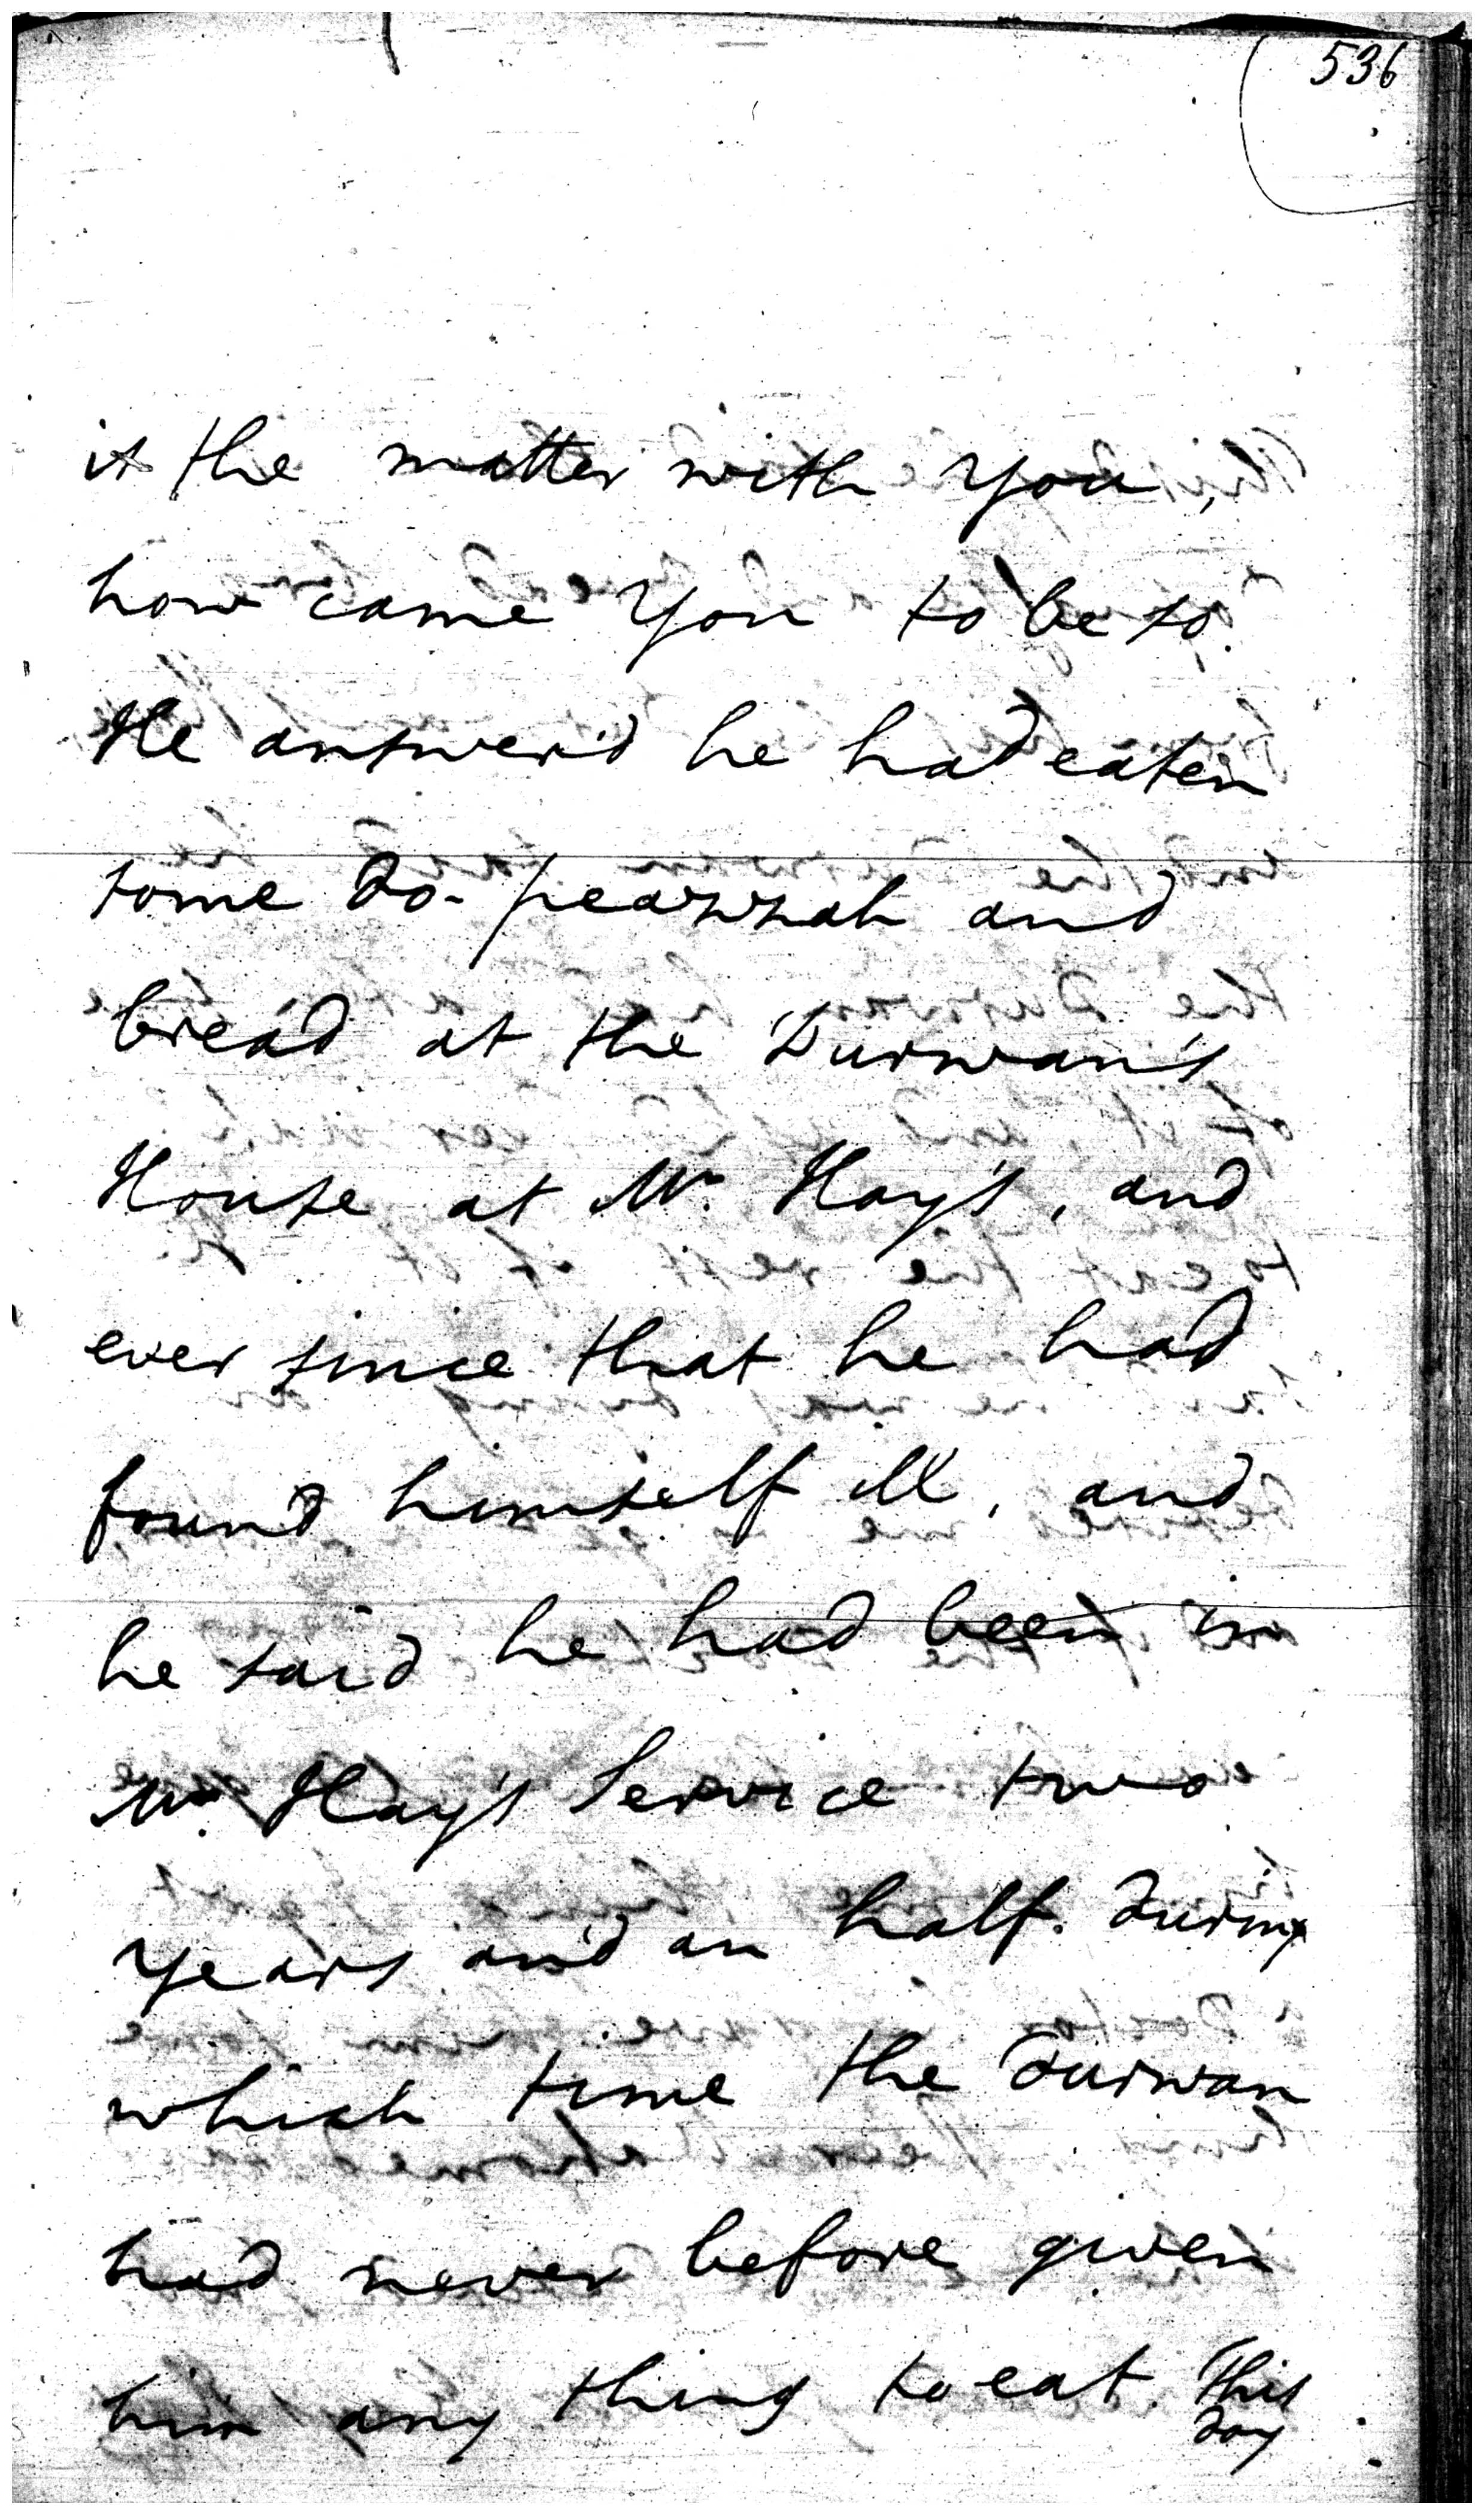 536
is the matter with you,
how came you to be so.
He answer'd he had eaten
some do-peazzah and
bread at the Durwan's
House at Mr. Hay's, and
ever since that he had
found himself ill, and
he said he had been in
Mr. Hay's Service two
years and an half. During
which time the Durwan
had never before given
him any thing to eat. This
day